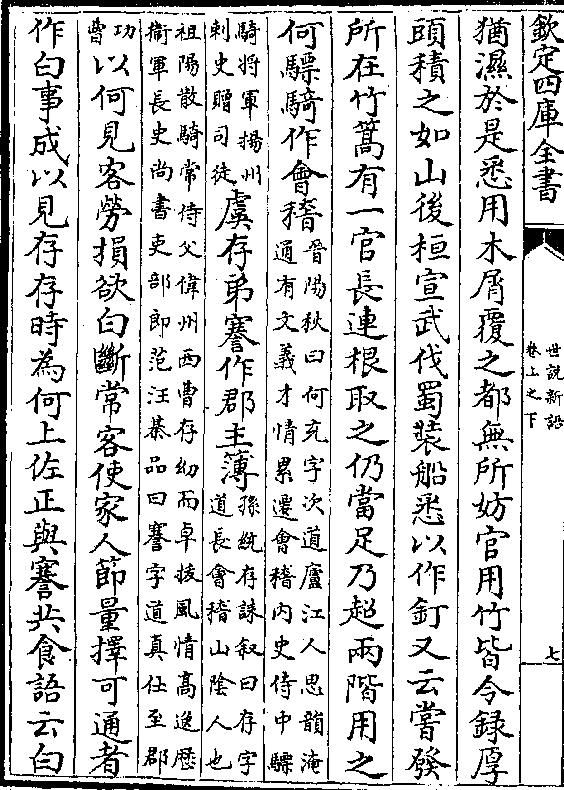 欽定四庫全書
世說新語
卷上之下
七
猶濕於是悉用木屑覆之都無所妨官用竹皆令録厚
頭積之如山後桓宣武伐蜀裝船悉以作釘又云嘗發
所在竹篙有一官長連根取之仍當足乃超兩階用之
何驃騎作會稽
晉陽秋曰何充字次道廬江人思韻淹
通有文義才情累遷會稽内史侍中驃
騎將軍揚州
刺史贈司徒
虞存弟謇作郡主簿
孫統存誄叙曰存字
道長會稽山陰人也
祖陽散騎常侍父偉州西曹存幼而卓拔風情高逸歷
衛軍長史尚書吏部郎范汪棊品曰謇字道真仕至郡
功
曹
以何見客勞損欲白斷常客使家人節量擇可通者
作白事成以見存存時為何上佐正與謇共食語云白